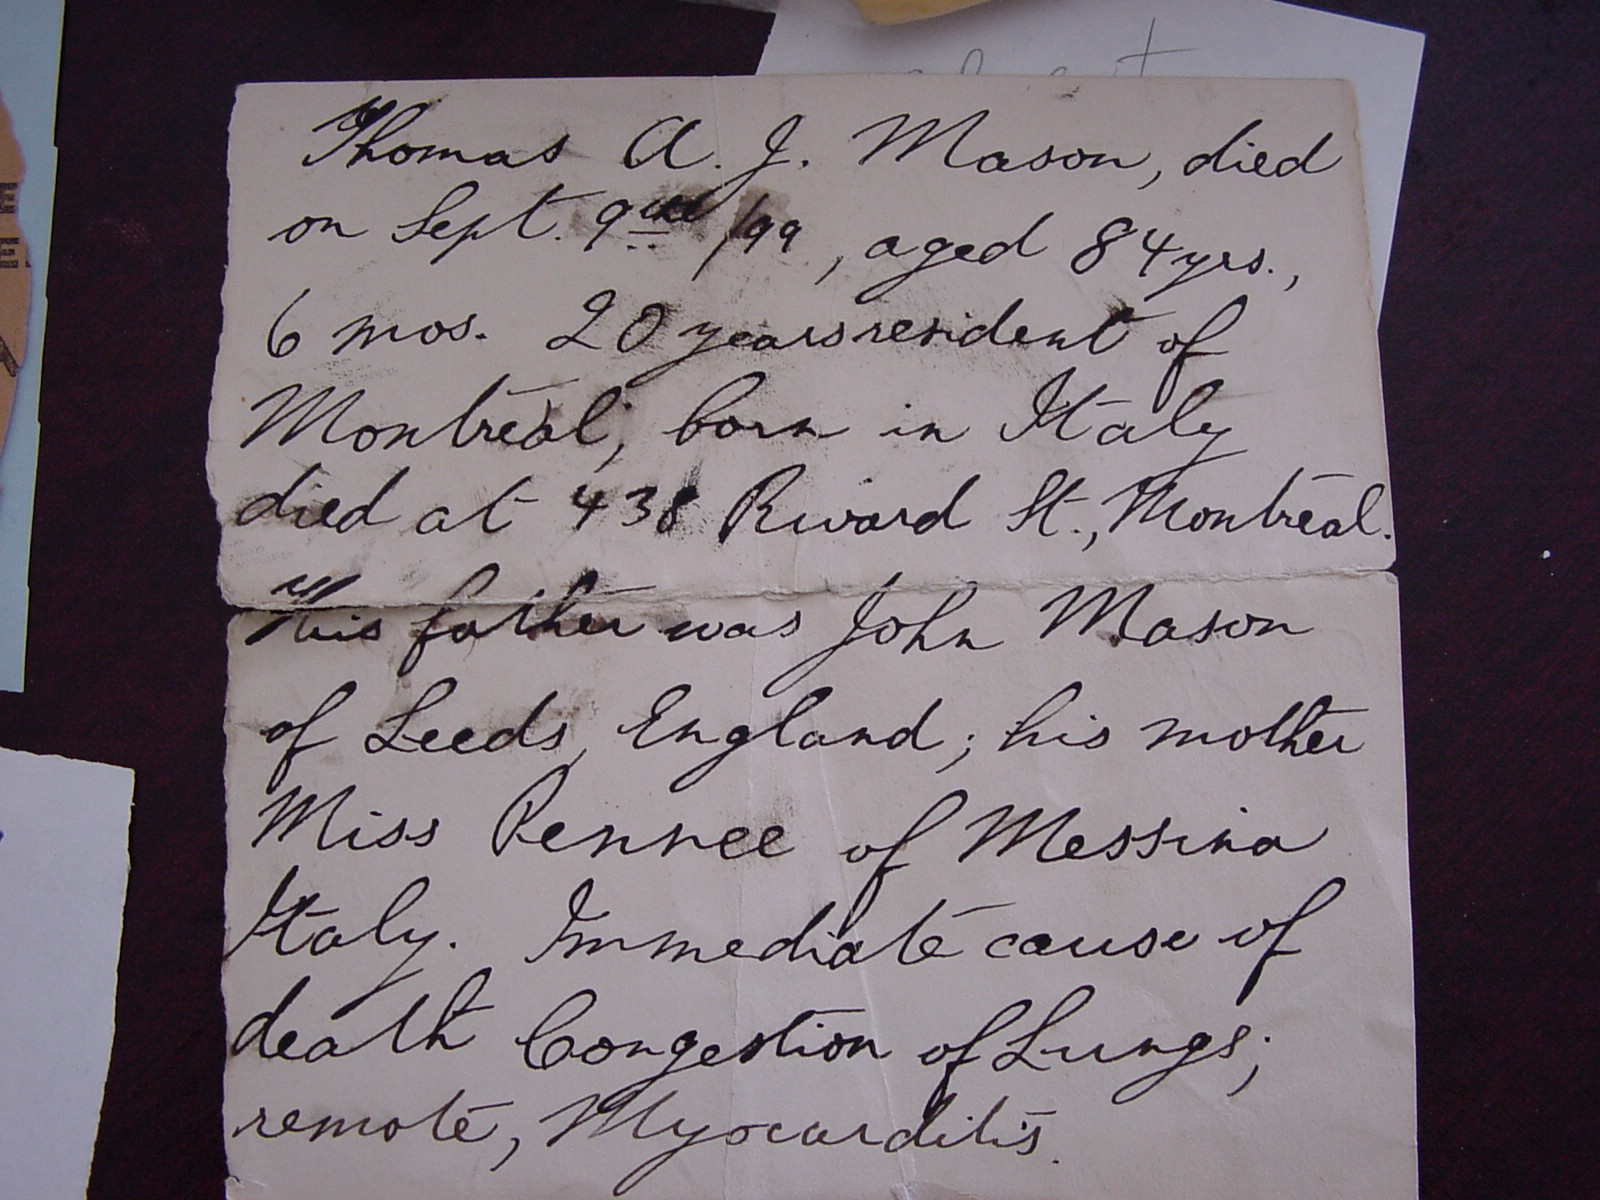 Thomas A. J. Mason, died
on Sept. 9th /99, aged 84 yrs.,
6 mos. 20 years resident of
Montreal, born in Italy
died at 438 Rivard St., Montreal.
His father was John Mason
of Leeds, England; his mother
Miss Rennee of Messina
Italy. Immediate cause of
death Congestion of Lungs;
remote, Myocarditis.